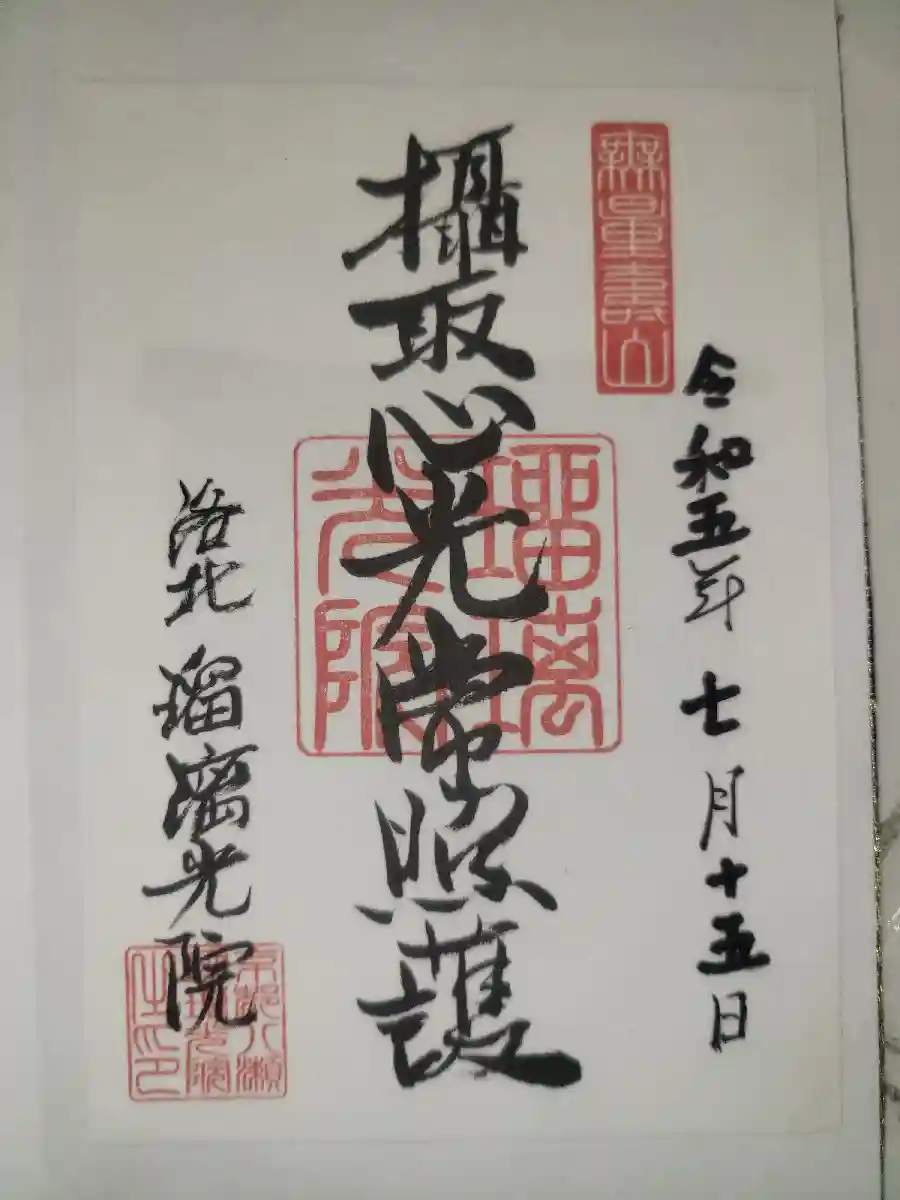 無量壽山
令和五年七月十五日
攝取心光常照護
瑠璃光院
洛北瑠璃光院